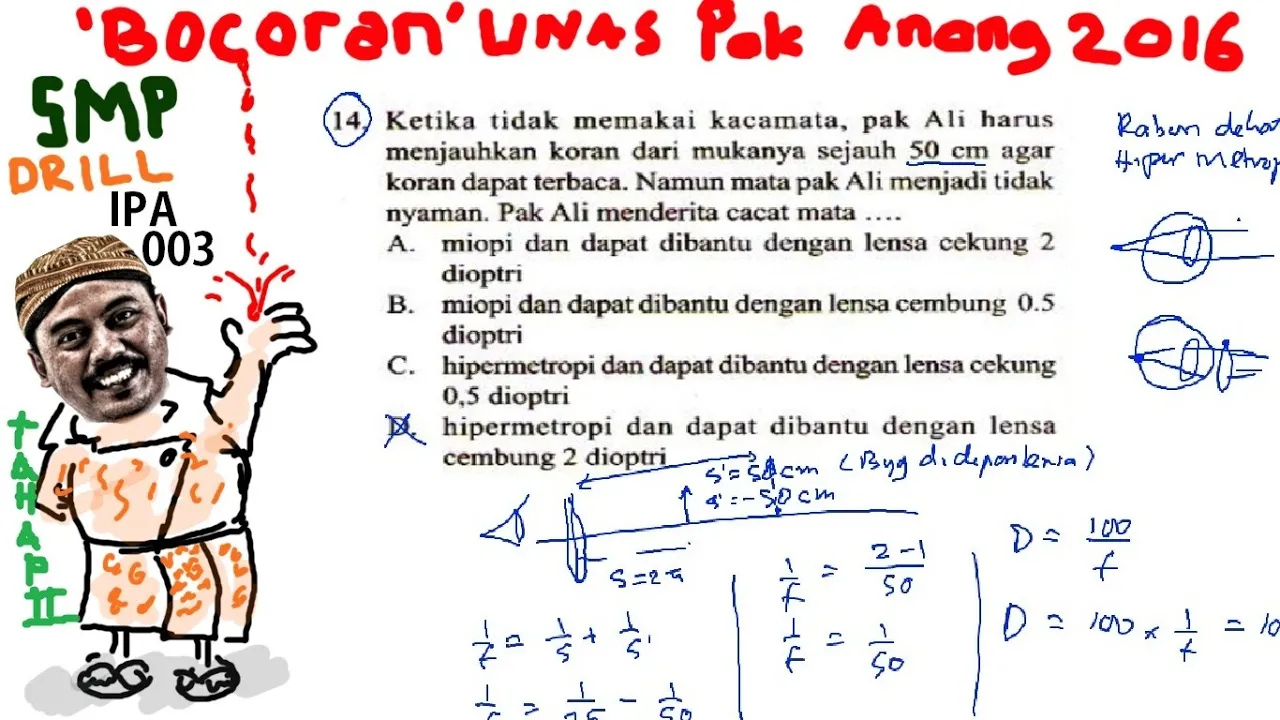 'Bocoran' UNAS Pak Anang 2016
SMP
DRILL
IPA
003
TAHAP II
14. Ketika tidak memakai kacamata, pak Ali harus
menjauhkan koran dari mukanya sejauh 50 cm agar
koran dapat terbaca. Namun mata pak Ali menjadi tidak
nyaman. Pak Ali menderita cacat mata ….
A. miopi dan dapat dibantu dengan lensa cekung 2
dioptri
B. miopi dan dapat dibantu dengan lensa cembung 0.5
dioptri
C. hipermetropi dan dapat dibantu dengan lensa cekung
0,5 dioptri
D. hipermetropi dan dapat dibantu dengan lensa
cembung 2 dioptri
Rabun
Hiper metrop
s' = 50 cm
s' = -50 cm
D = 100/f
1/f = (2-1)/50
1/f = 1/s + 1/s'
1/f = 1/50
D = 100 × 1/f = 10
1/f = 1/25 - 1/50